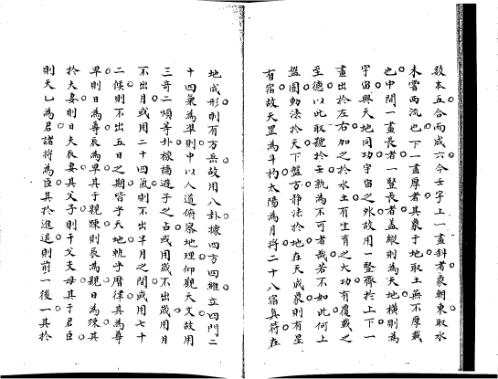 數本五合而成六今壬字上一畫斜者象朝東取水
未嘗西流也下一畫厚者其象于地取土無不厚載
也中間一畫長者一竪長者蓋縱則為天地橫則為
宇宙與天地同功宇宙之外故用一竪齊於上下一
畫出於左右加之於水土有生育之大功有覆載之
至德以此取號於壬孰為不可者哉若不如此何上
盤圓動法於天下盤方靜法於地在天成象則有星
有宿故天罡為斗杓太陽為月將二十八宿具符在
地成形則有方岳故用八卦據四方四維立四門二
十四氣為準則中以人道俯察地理仰觀天文故用
三奇二煩等卦極諸遊子之占或用歲不出歲用月
不出月或用二十四氣則不出半月之間或用七十
二候則不出五日之期皆乎天地軌乎曆律其為尊
卑則日為尊辰為卑其于親踈則辰為親日為踈其
於夫妻則日夫辰妻其父子則干父支母其于君臣
則天乙為君諸將為臣其於進退則前一後一其於